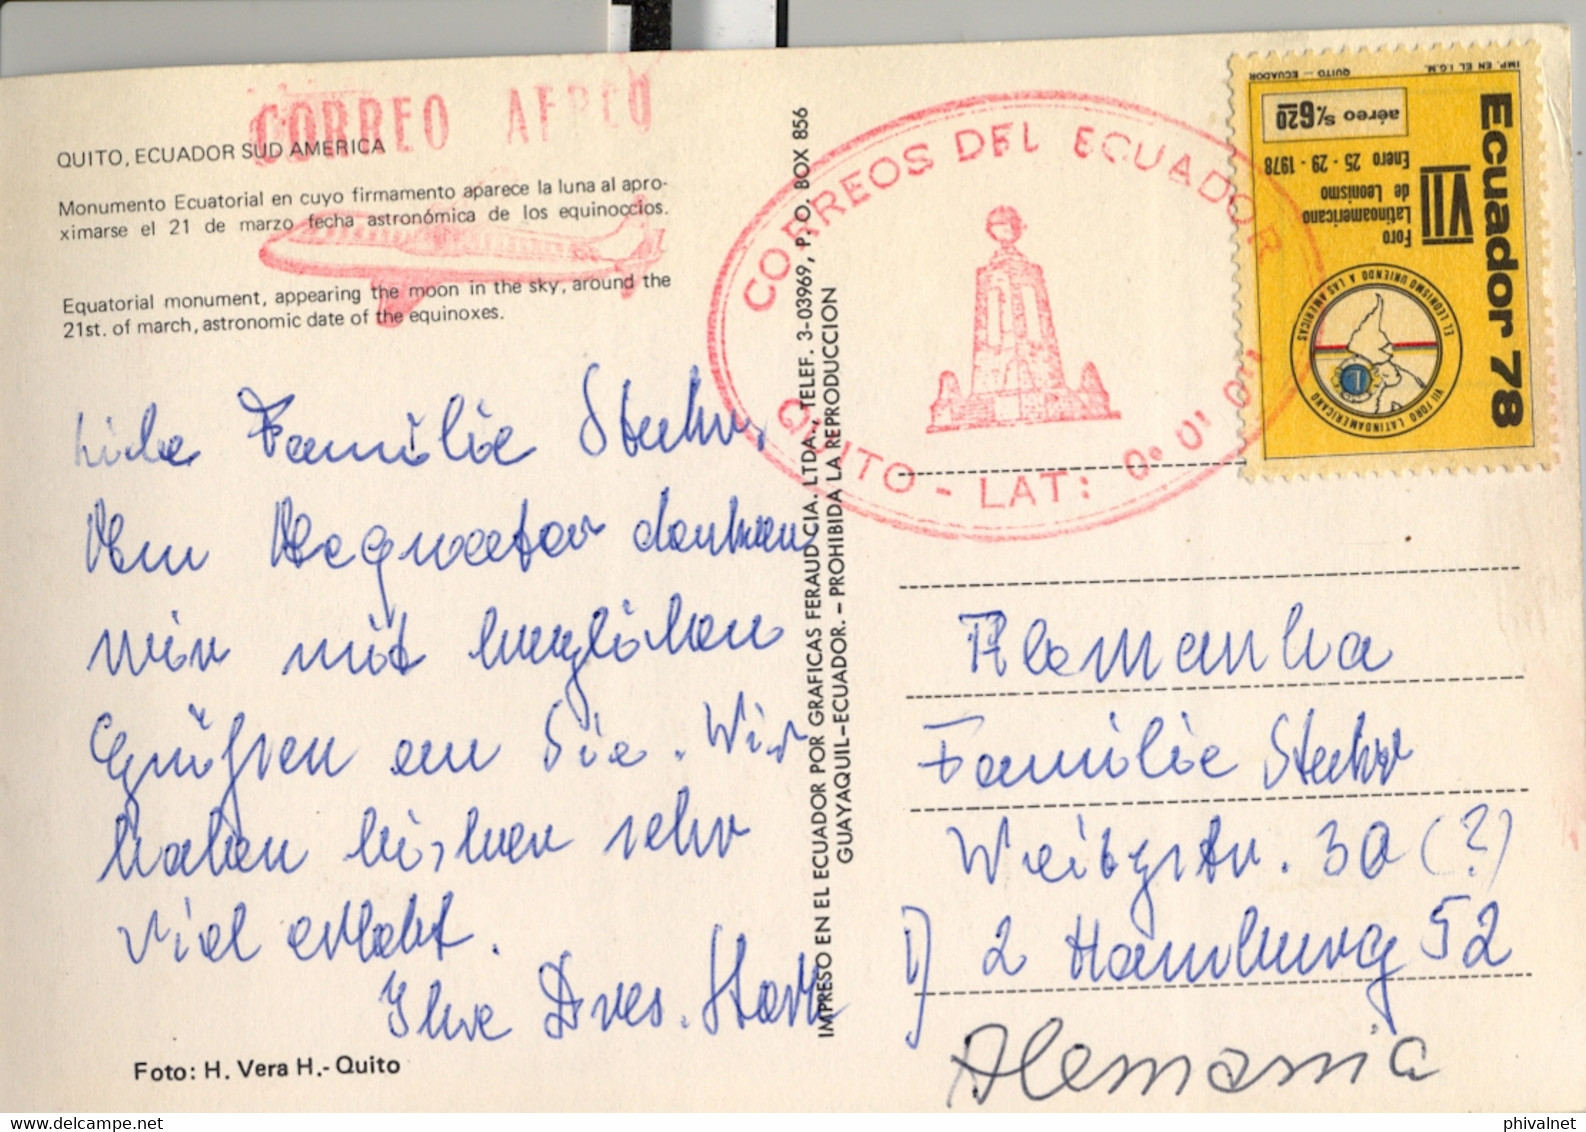 CORREO AEREO
QUITO, ECUADOR SUD AMERICA
Monumento Ecuatorial en cuyo firmamento aparece la luna al apro-
ximarse el 21 de marzo fecha astronómica de los equinoccios.
Equatorial monument, appearing the moon in the sky, around the
21st. of march, astronomic date of the equinoxes.
Liebe Familie
Am Aequator denken
wir mit herzlichen
Grüßen an Sie. Wir
haben bisher sehr
viel erlebt.
Ihre Dres.
Foto: H. Vera H.- Quito
IMPRESO EN EL ECUADOR POR GRAFICAS FERAUD CIA. LTDA., TELEF. 3-03969, P. O. BOX 856
GUAYAQUIL-ECUADOR. - PROHIBIDA LA REPRODUCCION
CORREOS DEL ECUADOR
QUITO - LAT: 0° 0' 0"
IMP. EN EL I.G.M. QUITO - ECUADOR
Ecuador 78
aéreo S/. 6.20
VII
Foro
Latinoamericano
de Leonismo
Enero 25 - 29 - 1978
VII FORO LATINOAMERICANO
EL LEONISMO UNIENDO A LAS AMERICAS
Alemanha
Familie
30 (?)
D 2 Hamburg 52
Alemania
phivalnet